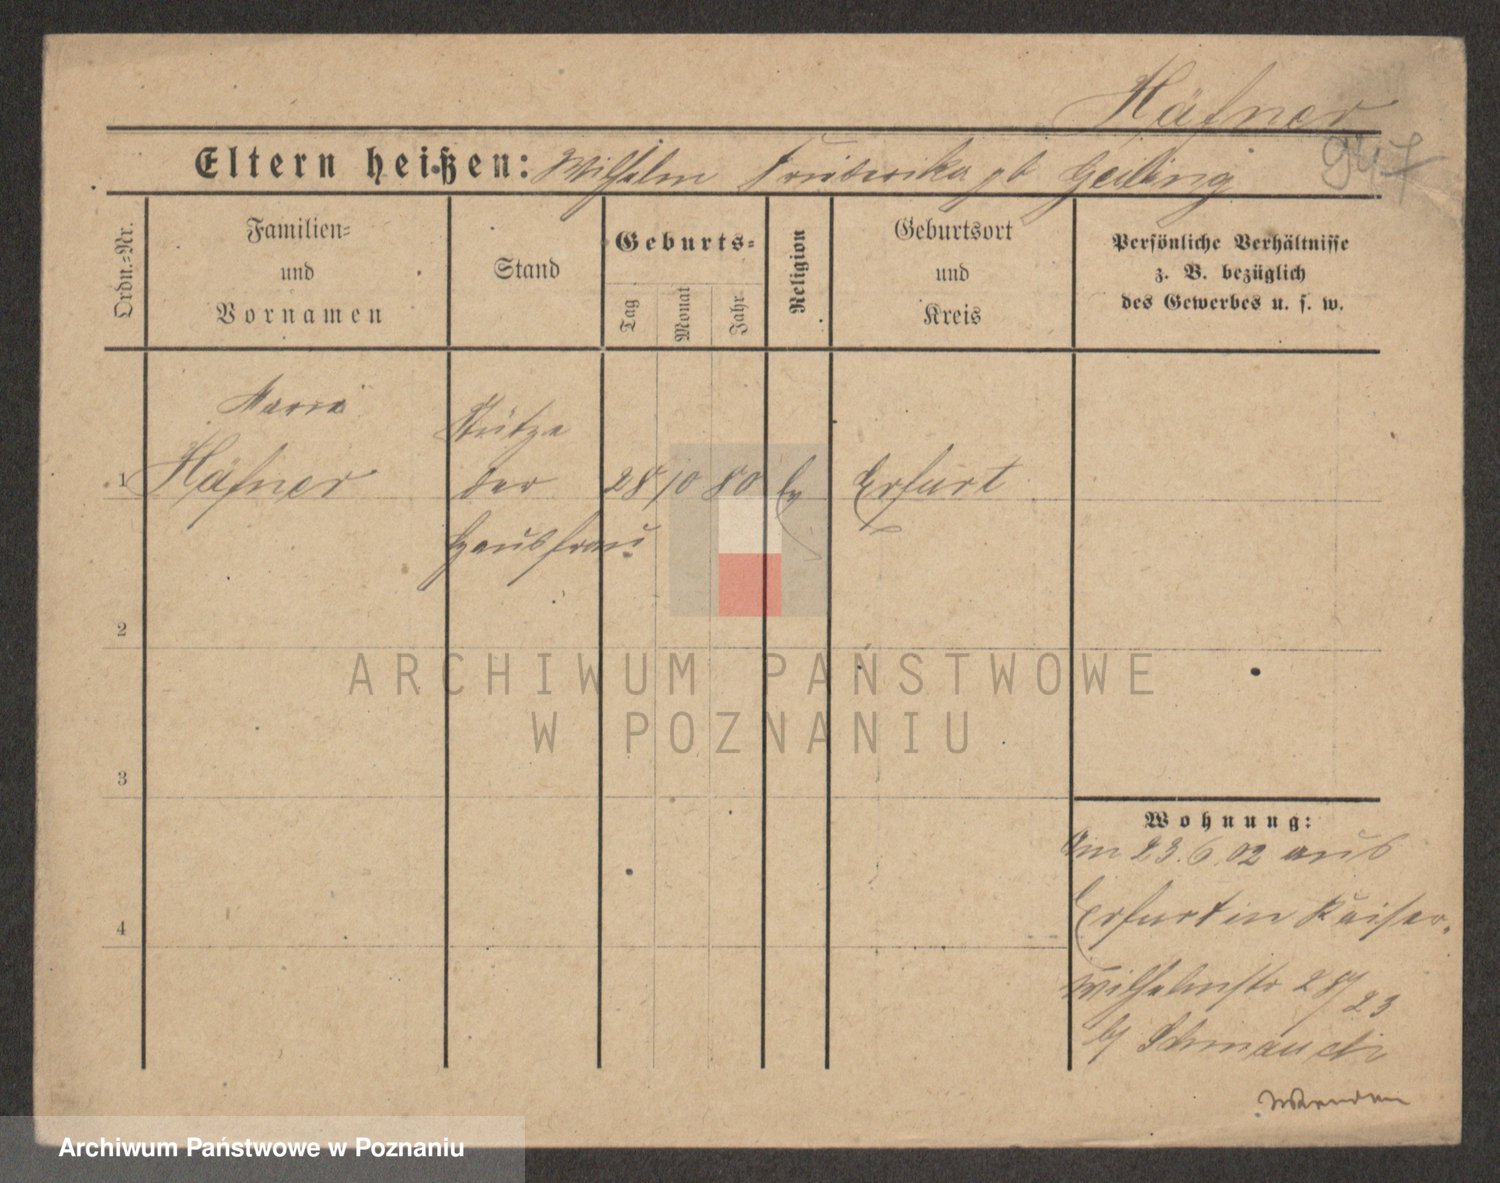 Häfner
Eltern heißen: Wilhelm Friederika gb Geiling
Ordn.=Nr.
Familien=
und
Vornamen
Stand
Geburts=
Tag
Monat
Jahr
Religion
Geburtsort
und
Kreis
Persönliche Verhältnisse
z. B. bezüglich
des Gewerbes u. s. w.
Maria
Stütze
1 Häfner der 28 10 80 ev Erfurt
Hausfrau
2
ARCHIWUM PAŃSTWOWE
W POZNANIU
3
Wohnung:
Am 23.6.02 aus
Erfurt in Kaiser
4
wilhelmstr 28/23
bj
Wenden
Archiwum Państwowe w Poznaniu